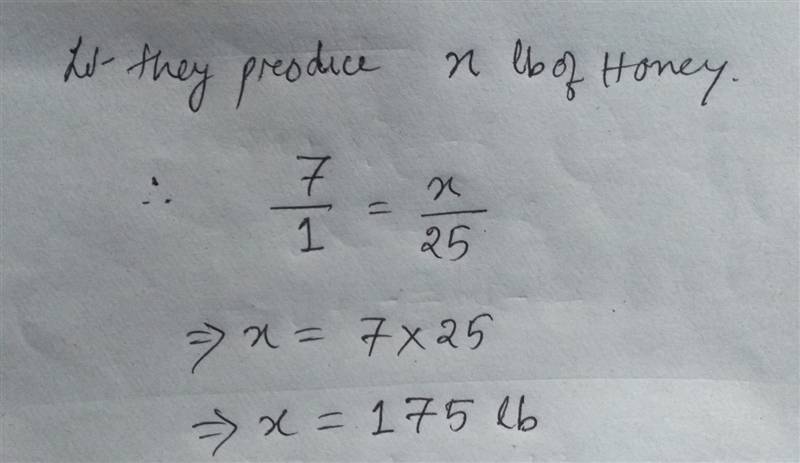 Let they preoduce x lb of Honey.
∴ 7/1 = x/25
⇒ x = 7×25
⇒ x = 175 lb